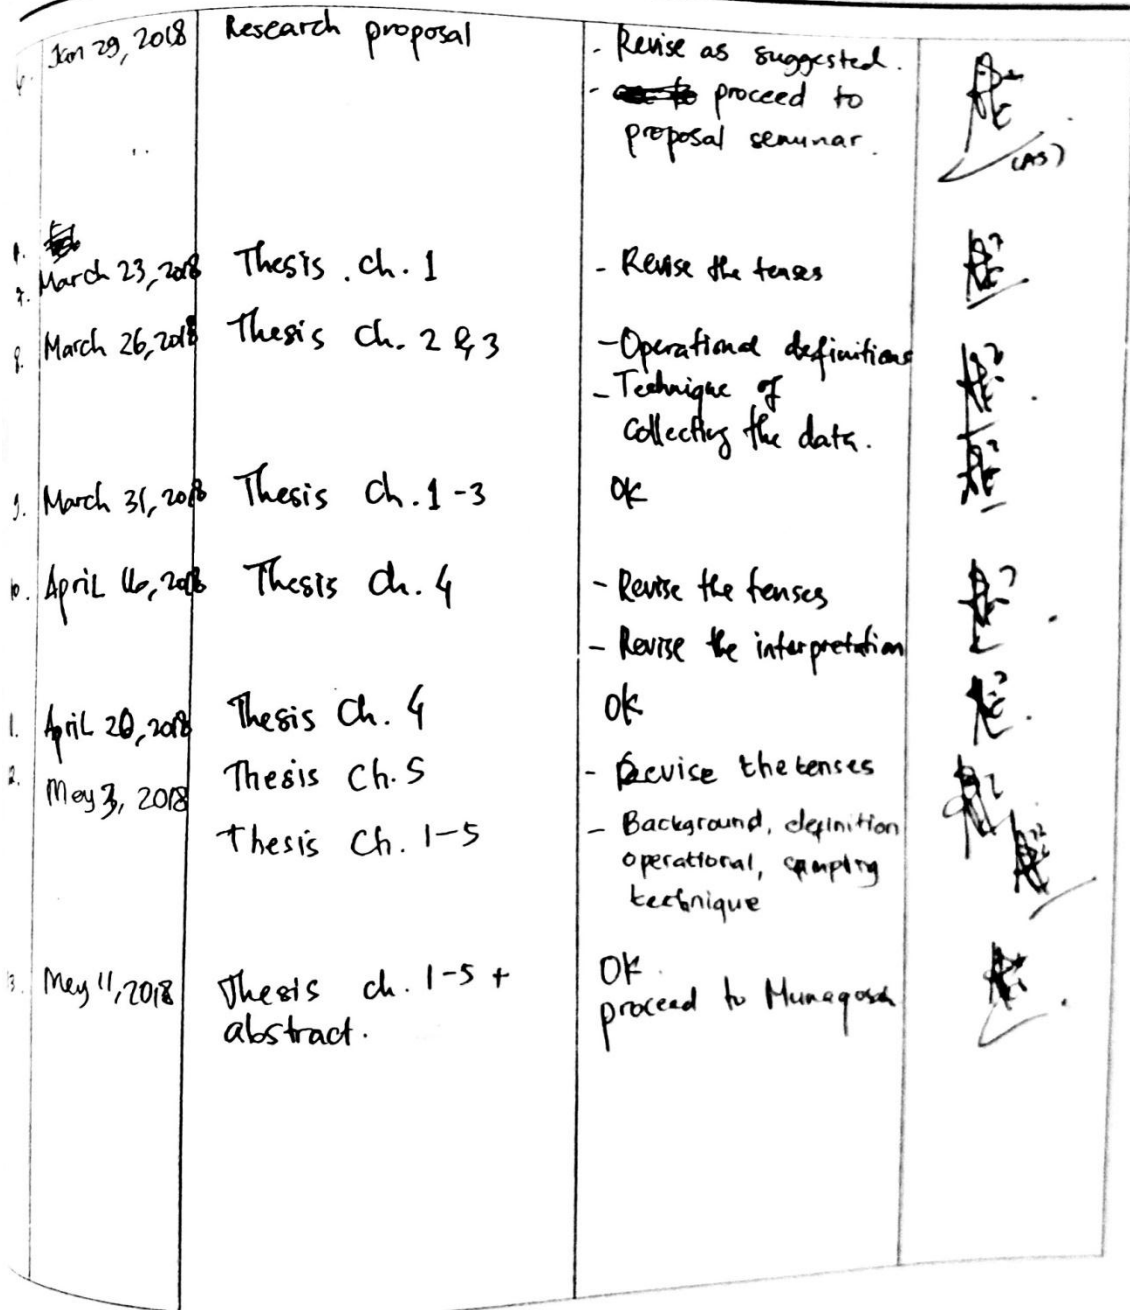 6. Jan 29, 2018 Research proposal - Revise as suggested.
- proceed to
proposal seminar.
(AS)
7. March 23, 2018 Thesis . Ch. 1 - Revise the tenses
8. March 26, 2018 Thesis Ch. 2 & 3 - Operational definitions
- Technique of
collecting the data.
9. March 31, 2018 Thesis Ch. 1-3 OK
10. April 16, 2018 Thesis Ch. 4 - Revise the tenses
- Revise the interpretation
1. April 20, 2018 Thesis Ch. 4 OK
2. May 3, 2018 Thesis Ch. 5 - Revise the tenses
Thesis Ch. 1-5 - Background, definition
operational, sampling
technique
3. May 11, 2018 Thesis ch. 1-5 + OK.
abstract. proceed to Munaqosah